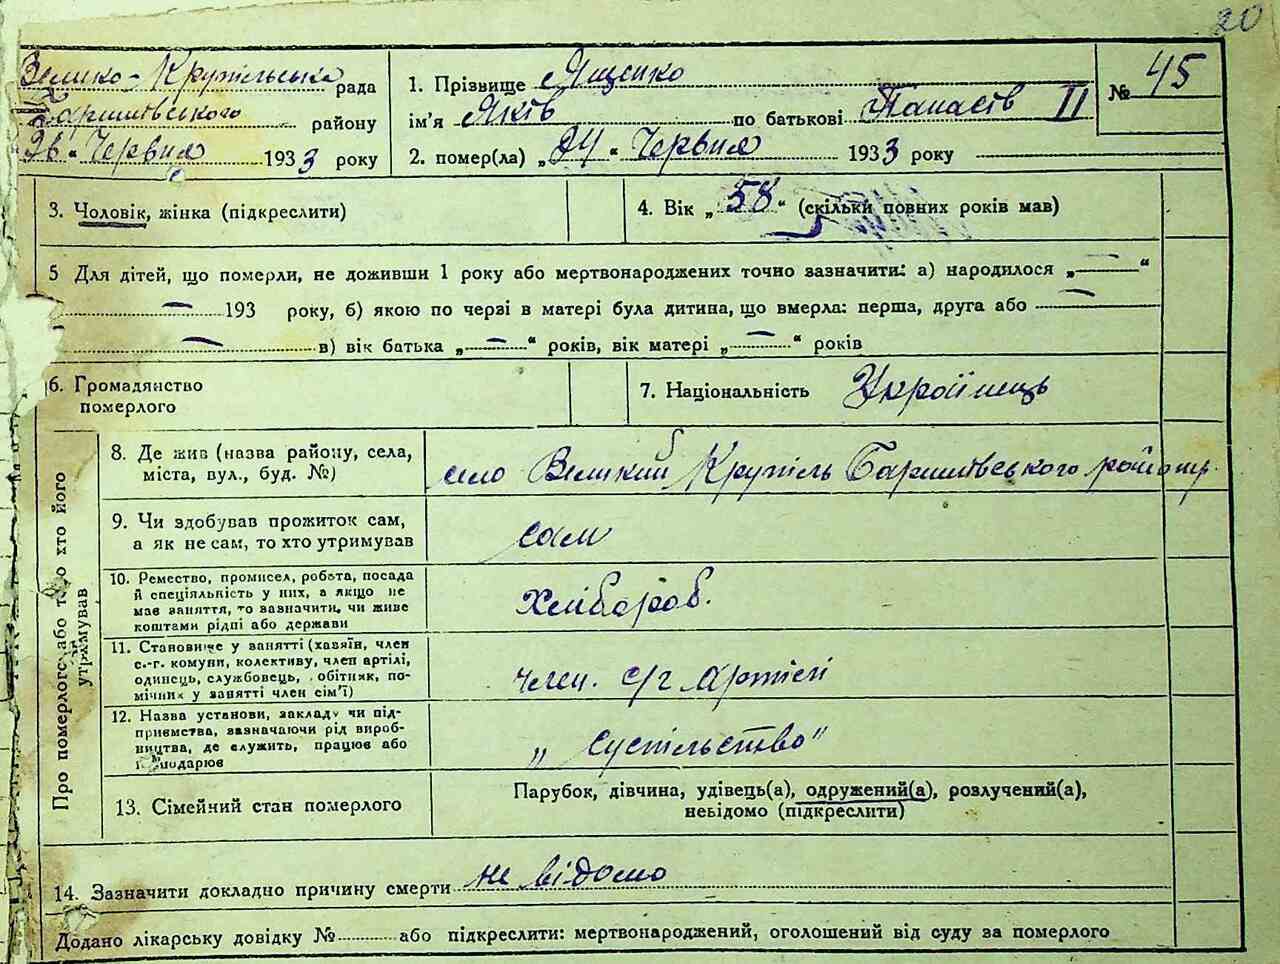 20
Велико-Крупільська рада
Баришівського району
"26" Червня 1933 року
1. Прізвище Ященко
ім'я Яків по батькові Панасів II
2. помер(ла) „24" Червня 1933 року
№ 45
3. Чоловік, жінка (підкреслити)
4. Вік „58" (скільки повних років мав)
5 Для дітей, що померли, не доживши 1 року або мертвонароджених точно зазначити: а) народилося „—"
— 193 року, б) якою по черзі в матері була дитина, що вмерла: перша, друга або —
— в) вік батька „—" років, вік матері „—" років
6. Громадянство
померлого
7. Національність Українець
Про померлого або того хто його
утримував
8. Де жив (назва району, села,
міста, вул., буд. №)
село Великий Крупіль Баришівського району
9. Чи здобував прожиток сам,
а як не сам, то хто утримував
сам
10. Ремество, промисел, робота, посада
й спеціяльність у них, а якщо не
має заняття, то зазначити, чи живе
коштами рідні або держави
хлібороб.
11. Становище у занятті (хазяїн, член
с.-г. комуни, колективу, член артілі,
одинець, службовець, робітник, по-
мічник у занятті член сім'ї)
член. с/г Артілі
12. Назва установи, закладу чи під-
приємства, зазначаючи рід вироб-
ництва, де служить, працює або
господарює
„Сустільство"
13. Сімейний стан померлого
Парубок, дівчина, удівець(а), одружений(а), розлучений(а),
невідомо (підкреслити)
14. Зазначити докладно причину смерти не відомо
Додано лікарську довідку № або підкреслити: мертвонароджений, оголошений від суду за померлого